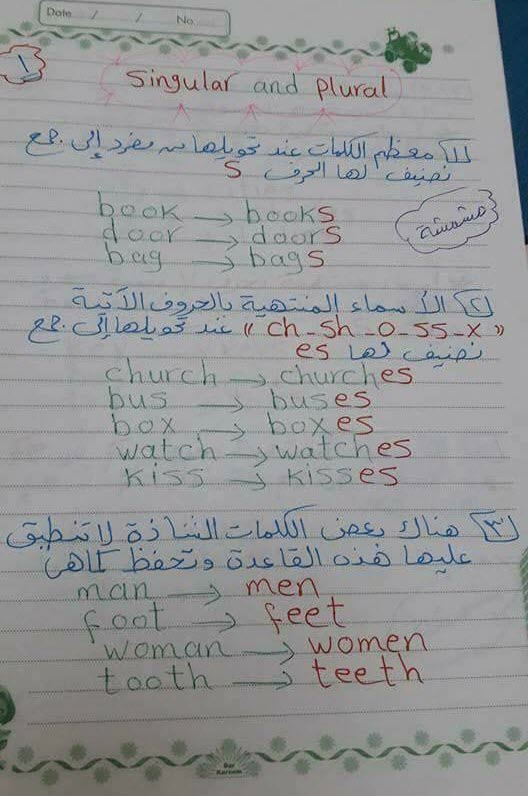 Date / / No
١
Singular and plural
١) معظم الكلمات عند تحويلها من مفرد إلى جمع
نضيف لها الحرف S
book → books
door → doors
bag → bags
مشمشة
٢) الأسماء المنتهية بالحروف الآتية
« ch - sh - o - ss - x » عند تحويلها إلى جمع
نضيف لها es
church → churches
bus → buses
box → boxes
watch → watches
kiss → kisses
٣) هناك بعض الكلمات الشاذة لا تنطبق
عليها هذه القاعدة وتحفظ كما هى
man → men
foot → feet
woman → women
tooth → teeth
Dar
Kareem